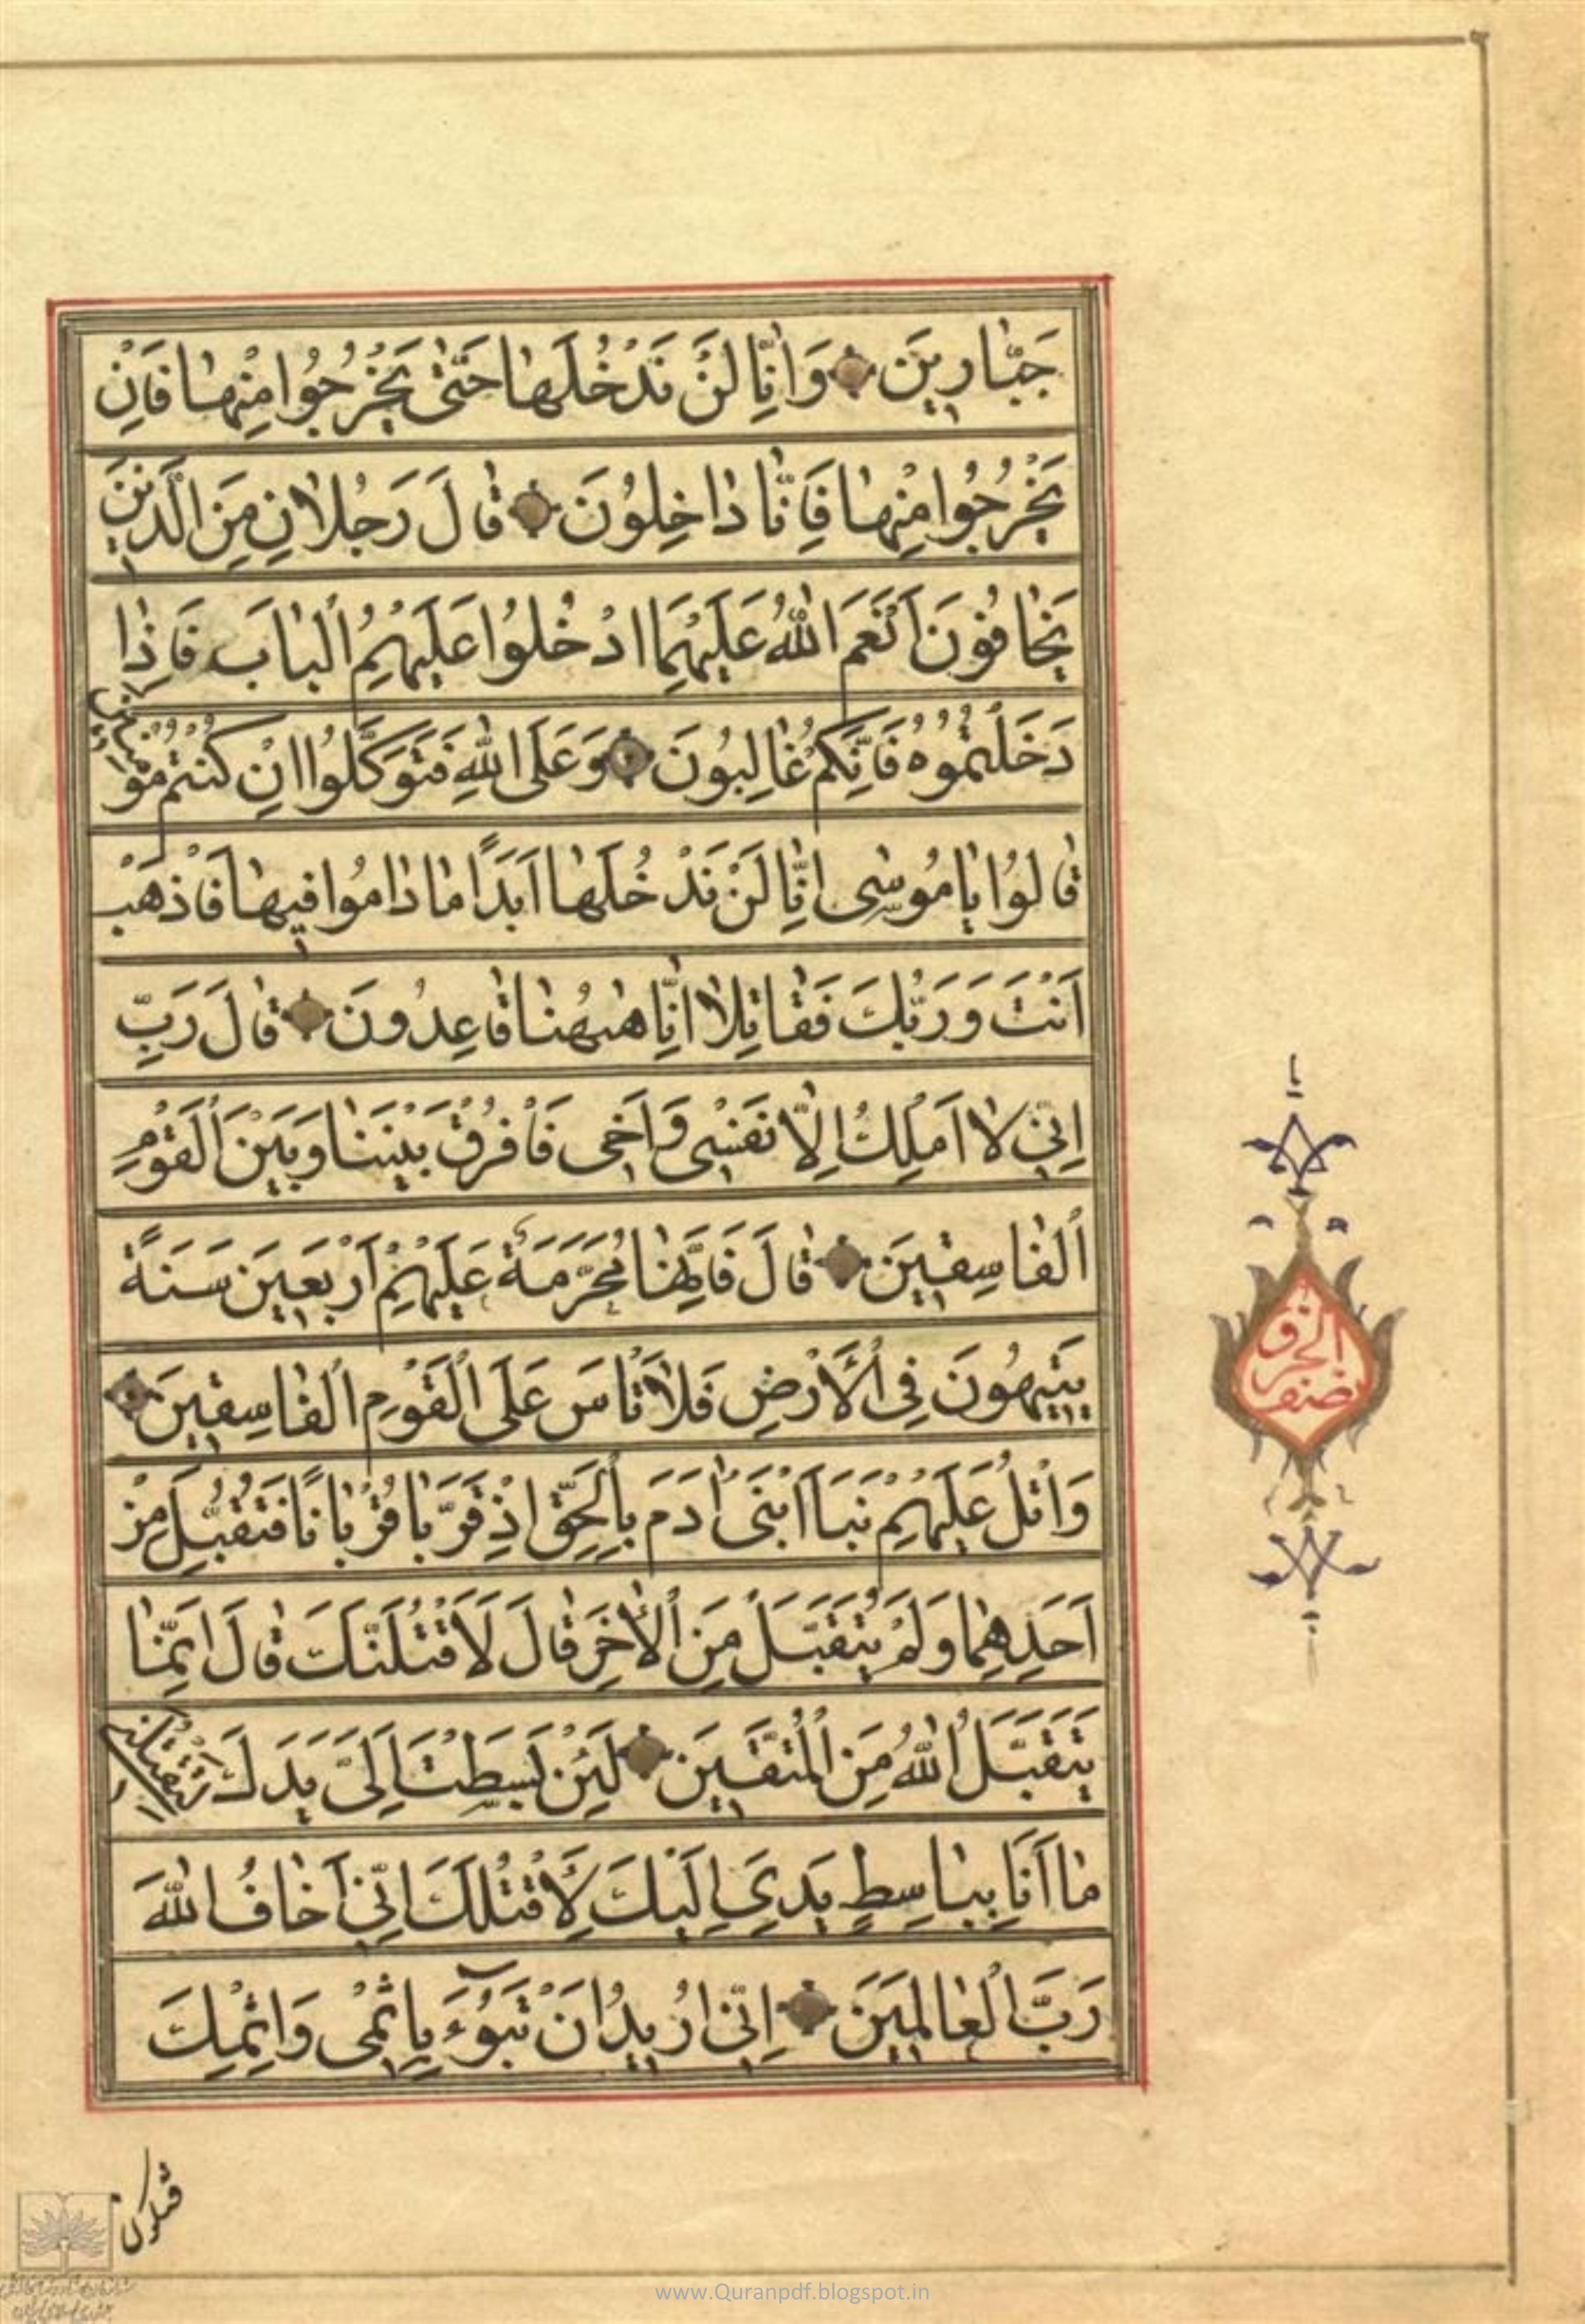 جَبّٰارِينَ وَاِنّٰا لَنْ نَدْخُلَهٰا حَتّٰى يَخْرُجُوا مِنْهٰا فَاِنْ
يَخْرُجُوا مِنْهٰا فَاِنّٰا دٰاخِلُونَ قٰالَ رَجُلٰانِ مِنَ الَّذِينَ
يَخٰافُونَ اَنْعَمَ اللّٰهُ عَلَيْهِمَا ادْخُلُوا عَلَيْهِمُ الْبٰابَ فَاِذٰا
دَخَلْتُمُوهُ فَاِنَّكُمْ غٰالِبُونَ وَعَلَى اللّٰهِ فَتَوَكَّلُوا اِنْ كُنْتُمْ مُؤْمِنِينَ
قٰالُوا يٰا مُوسٰى اِنّٰا لَنْ نَدْخُلَهٰا اَبَدًا مٰا دٰامُوا فِيهٰا فَاذْهَبْ
اَنْتَ وَرَبُّكَ فَقٰاتِلٰا اِنّٰا هٰهُنٰا قٰاعِدُونَ قٰالَ رَبِّ
اِنِّي لٰا اَمْلِكُ اِلّٰا نَفْسِي وَاَخِي فَافْرُقْ بَيْنَنٰا وَبَيْنَ الْقَوْمِ
الْفٰاسِقِينَ قٰالَ فَاِنَّهٰا مُحَرَّمَةٌ عَلَيْهِمْ اَرْبَعِينَ سَنَةً
يَتِيهُونَ فِي الْاَرْضِ فَلٰا تَاْسَ عَلَى الْقَوْمِ الْفٰاسِقِينَ
وَاتْلُ عَلَيْهِمْ نَبَاَ ابْنَيْ اٰدَمَ بِالْحَقِّ اِذْ قَرَّبٰا قُرْبٰانًا فَتُقُبِّلَ مِنْ
اَحَدِهِمٰا وَلَمْ يُتَقَبَّلْ مِنَ الْاٰخَرِ قٰالَ لَاَقْتُلَنَّكَ قٰالَ اِنَّمٰا
يَتَقَبَّلُ اللّٰهُ مِنَ الْمُتَّقِينَ لَئِنْ بَسَطْتَ اِلَيَّ يَدَكَ لِتَقْتُلَنِي
مٰا اَنَا بِبٰاسِطٍ يَدِيَ اِلَيْكَ لِاَقْتُلَكَ اِنِّي اَخٰافُ اللّٰهَ
رَبَّ الْعٰالَمِينَ اِنِّي اُرِيدُ اَنْ تَبُوْءَ بِاِثْمِي وَاِثْمِكَ
نصف الحزب
فتكون
www.Quranpdf.blogspot.in